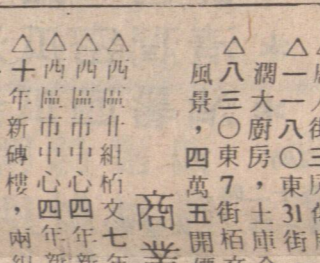 △一一八〇東31街
濶大廚房，土庫
△八三〇東7街栢
風景，四萬五開
商業
△西區廿組栢文七年
△西區市中心四年新
△西區市中心四年新
△十年新磚樓，兩組